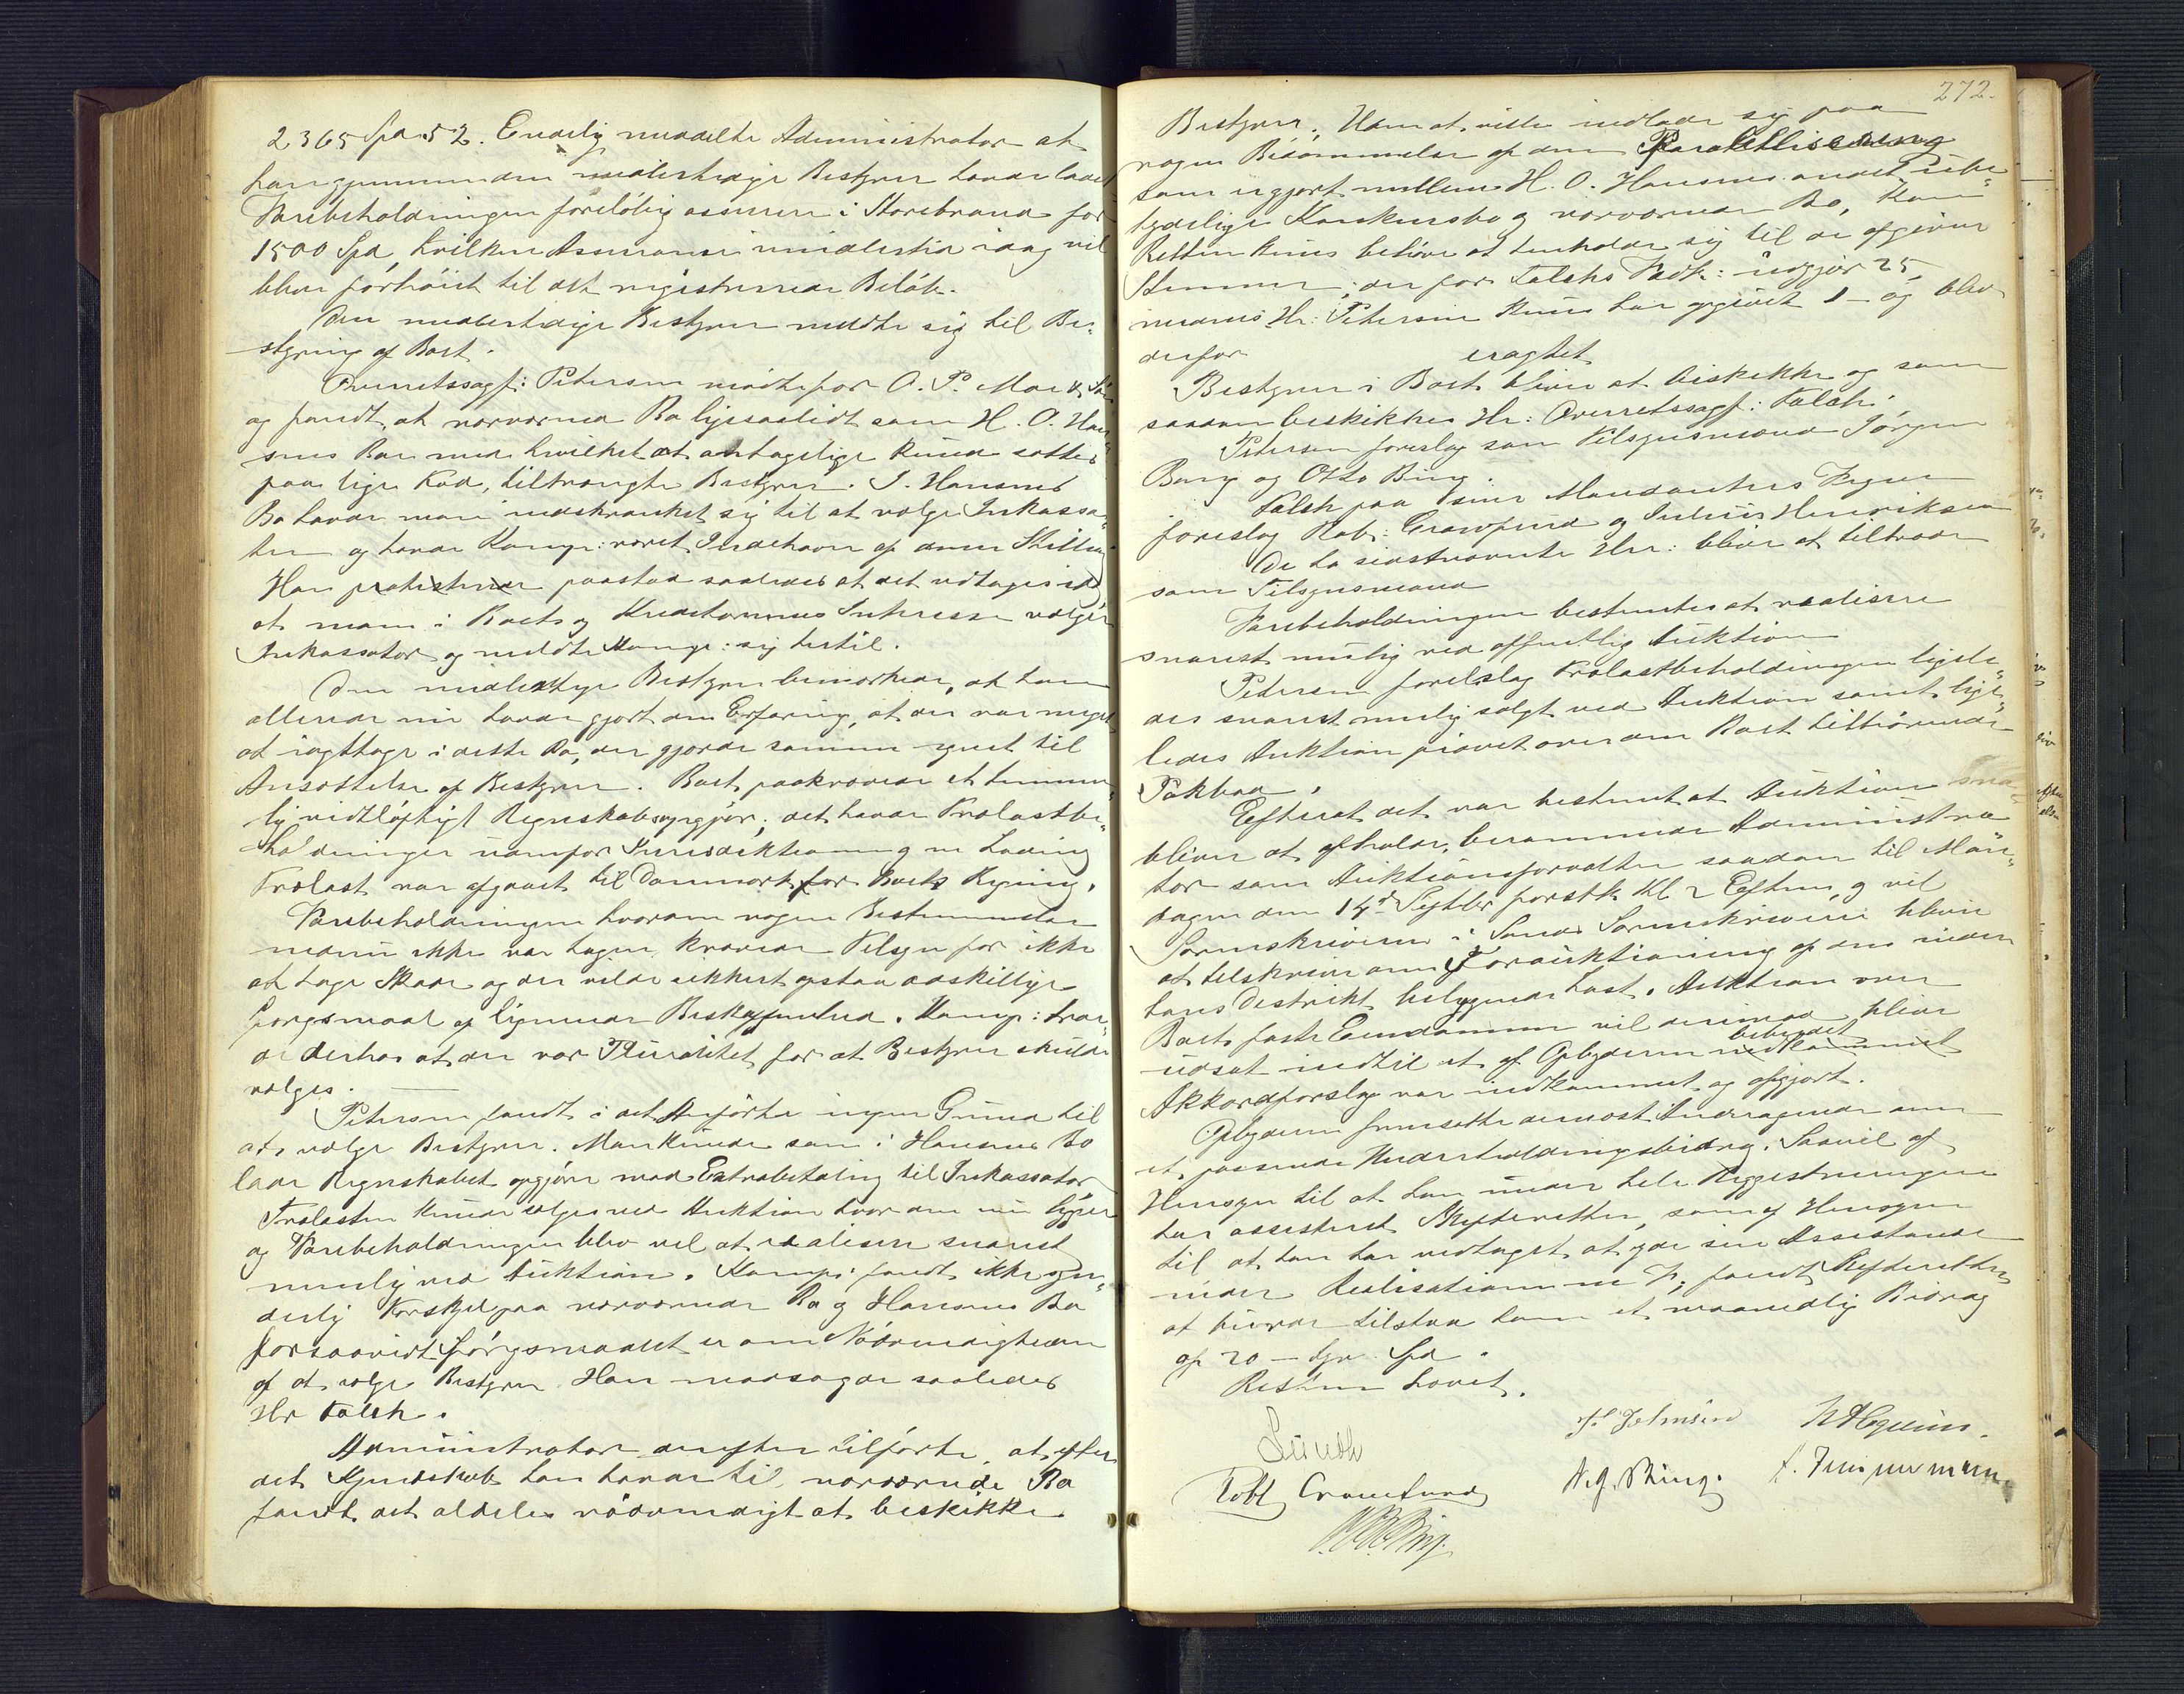 2365 Spd. 52. Endelig meddelte Administrator at
han gjennem den midlertidige Bestyrer havde ladet
Varebeholdningen foreløbig assurere i Storebrand for
1500 Spd, hvilken Assurance imidlertid idag vil
blive forhøiet til det registrerede Beløb.
Den midlertidige Bestyrer meldte sig til Be-
styring af Boet.
Overretssagf: Petersen mødte for O. P. Moe & Søn
og fandt, at nærværende Bo ligesaalidt som H. O. Han
sens Bo med hvilket det antagelige kunde sættes
paa lige Fod, tiltrængte Bestyrer. I Hansens
Bo havde man indskrænket sig til at vælge Inkassa-
tor og havde Komp: været Indehaver af denne Stilling
Han protesterede paastod saaledes at det vedtages
at man i Boets og Kreditorernes Interesse vælger
Inkassator og meldte Komp: sig hertil.
Den midlertige Bestyrer bemærkede, at han
allerede nu havde gjort den Erfaring, at der var meget
at iagttage i dette Bo, der gjorde samme egnet til
Ansættelse af Bestyrer. Boet paakrævede et temme-
lig vidtløftigt Regnskabsopgjør; det havde Trælastbe-
holdninger udenfor Jurisdiktionen og en Ladning
Trælast var afgaaet til Danmark for Boets Regning.
Varebeholdningen hvorom nogen Bestemmelse
endnu ikke var tagen krævede Tilsyn for ikke
at tage Skade og der vilde sikkert opstaa adskillige
Spørgsmaal af lignende Beskaffenhed. Komp: tro-
de derhos at der var Pluralitet for at Bestyrer skulde
vælges.
Petersen fandt i det Anførte ingen Grund til
at vælge Bestyrer. Man kunde som i Hansens Bo
lade Regnskabet opgjøre mod Extrabetaling til Inkassator
Trælasten kunde sælges ved Auktion hvor den nu ligger
og Varebeholdningen blev vel at realisere snarest
mulig ved Auktion. Komp: fandt ikke syn-
derlig Forskjel paa nærværende Bo og Hansens Bo
forsaavidt Spørgsmaalet er om Nødvendigheden
af at vælge Bestyrer. Han modsagde saaledes
Hr Falch.
Administrator derefter tilførte, at efter
det Kjendskab han havde til nærværende Bo
fandt det aldeles nødvendigt at beskikke
272.
Bestyrer. Uden at ville indlade sig paa
nogen Bedømmelse af den Parallelisering
som er gjort mellem H. O. Hansens andet ube-
tydelige Konkursbo og nærværende Bo, kan
Retten kuns behøve at henholde sig til de afgivne
Stemmer, der for Falchs Vedk: udgjør 25,
medens Hr: Petersen kuns har opgivet 1 – og blev
derfor
eragtet
Bestyrer i Boet bliver at beskikke og som
saadan beskikkes Hr: Overretssagf: Falch.
Petersen foreslog som Tilsynsmænd Jørgen
Bang og Otto Bing.
Falch paa sine Mandanters Vegne
foreslog Rob: Crawfurd og Julius Henriksen
De to sidstnævnte Hrr: bliver at tiltræde
som Tilsynsmænd
Varebeholdningen bestemtes at realisere
snarest mulig ved offentlig Auktion
Petersen foreslog Trælastbeholdningen ligele-
des snarest mulig solgt ved Auktion samt lige-
ledes Auktion prøvet over den Boet tilhørende
Pakbod.
Efterat det var bestemt at Auktion
bliver at afholde, berammede Administra
tor som Auktionsforvalter saadan til Man-
dagen den 14de Septbr førstk. Kl. 2 Efterm, og vil
Sorenskriveren i Sands Sorenskriveri blive
at tilskrive om Forauktionering af den inden
hans Distrikt beliggende Last. Auktion over
Boets faste Eiendomme vil derimod blive
bebudet
udsat indtil et af Opbyderen indkommet
Akkordforslag var indkommet og afgjort.
Opbyderen fremsatte dernæst Andragende om
et passende Underholdningsbidrag. Saavel af
Hensyn til at han under hele Registreringen
har assisteret Skifteretten, som af Hensyn
til at han har vedtaget at yde sin Assistance
under Realisationen m V, fandt Skifteretten
at burde tilstaa ham et maanedlig Bidrag
af 20 – tyve Spd.
Retten hævet.
Lundh
Robt Crawfurd
A. J. Bing.